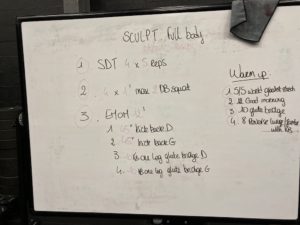 SCULPT Full body
1 SDT 4 x 5 Reps
2. 4 x 1' max DB squat
3. EMOM 12'
1. 45" kick back D
2. 45" kick back G
3. 15 one leg glute bridge D
4. 15 one leg glute bridge G
Warm up
1 5/5 world greatest stretch
2. 10 Good morning
3. 10 glute bridge
4. 8 Reverse lunge/
with KB